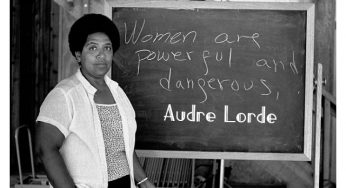 Women are
powerful and
dangerous,
Audre Lorde